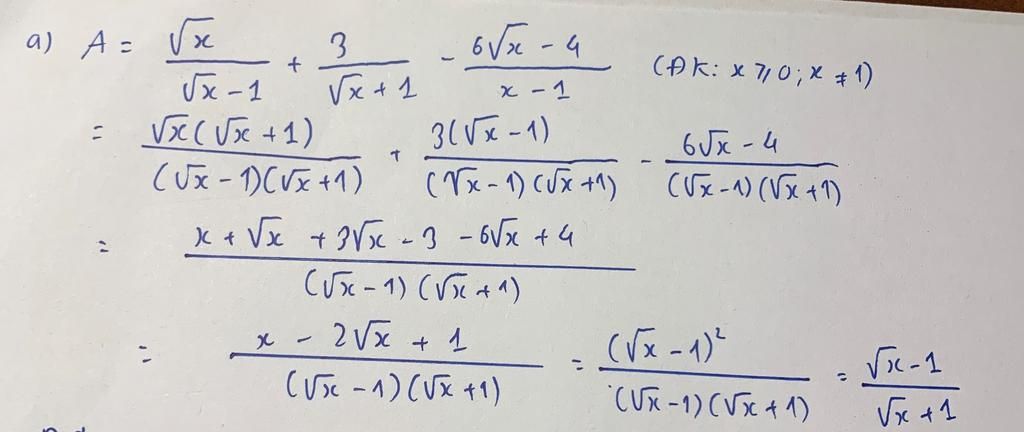 a) A = √x/(√x - 1) + 3/(√x + 1) - (6√x - 4)/(x - 1) (ĐK: x ⩾ 0; x ≠ 1)
= √x(√x + 1)/((√x - 1)(√x + 1)) + 3(√x - 1)/((√x - 1)(√x + 1)) - (6√x - 4)/((√x - 1)(√x + 1))
= (x + √x + 3√x - 3 - 6√x + 4)/((√x - 1)(√x + 1))
= (x - 2√x + 1)/((√x - 1)(√x + 1)) = (√x - 1)²/((√x - 1)(√x + 1)) = (√x - 1)/(√x + 1)